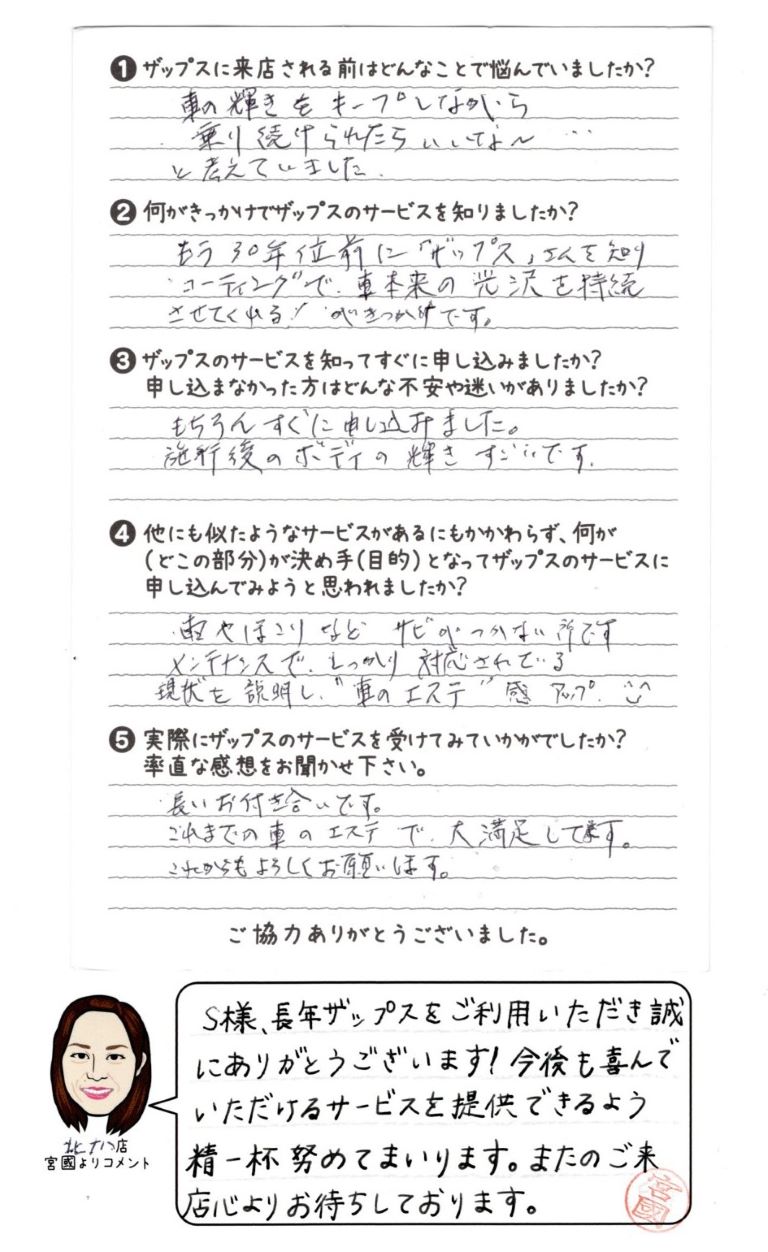 ❶ ザップスに来店される前はどんなことで悩んでいましたか?
車の輝きをキープしながら
乗り続けられたらいいな〜…
と考えていました.
❷ 何がきっかけでザップスのサービスを知りましたか?
もう30年位前に「ザップス」さんを知り
コーティングで、車本来の光沢を持続
させてくれる!がきっかけです。
❸ ザップスのサービスを知ってすぐに申し込みましたか?
申し込まなかった方はどんな不安や迷いがありましたか?
もちろんすぐに申し込みました。
施行後のボディの輝きすごいです.
❹ 他にも似たようなサービスがあるにもかかわらず、何が
(どこの部分)が決め手(目的)となってザップスのサービスに
申し込んでみようと思われましたか?
やほこりなど サビがつかない所です
メンテナンスで、しっかり対応されている
現状を説明し、"車のエステ"感アップ.
❺ 実際にザップスのサービスを受けてみていかがでしたか?
率直な感想をお聞かせ下さい。
長いお付き合いです。
これまでの車のエステで、大満足して来ます。
これからもよろしくお願いします。
ご協力ありがとうございました。
S様、長年ザップスをご利用いただき誠
にありがとうございます!今後も喜んで
いただけるサービスを提供できるよう
精一杯努めてまいります。またのご来
店心よりお待ちしております。
宮國
北ナハ店
宮國よりコメント